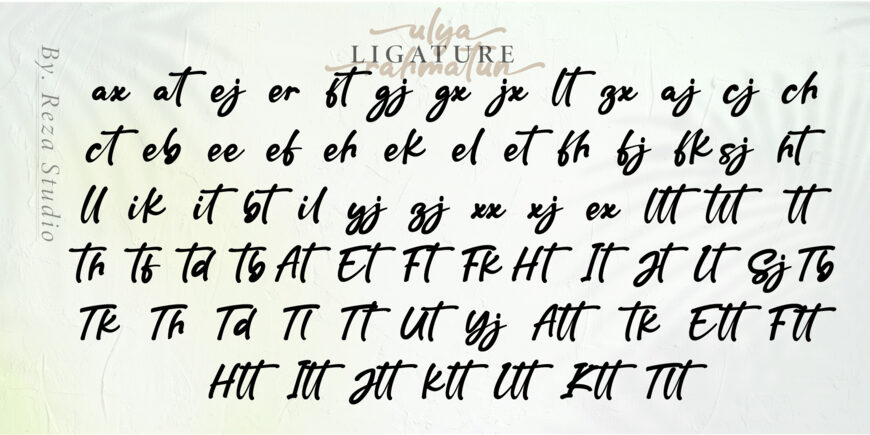 ulya
LIGATURE
rahmatun
By. Reza Studio
ax at ej er ft gj gx jx lt zx aj cj ch
ct eb ee ef eh ek el et fh fj fk sj ht
ll ik it bt il yj zj xx xj ex ltt ttt tt
th tf td tb At Et Ft Fk Ht It Jt Lt Sj Tb
Tk Th Td Tl Tt Ut Yj Att tk Ett Ftt
Htt Itt Jtt ktt Ltt Ktt Ttt